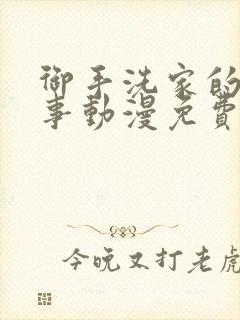 御手洗家的
事動漫免費
今晚又打老虎